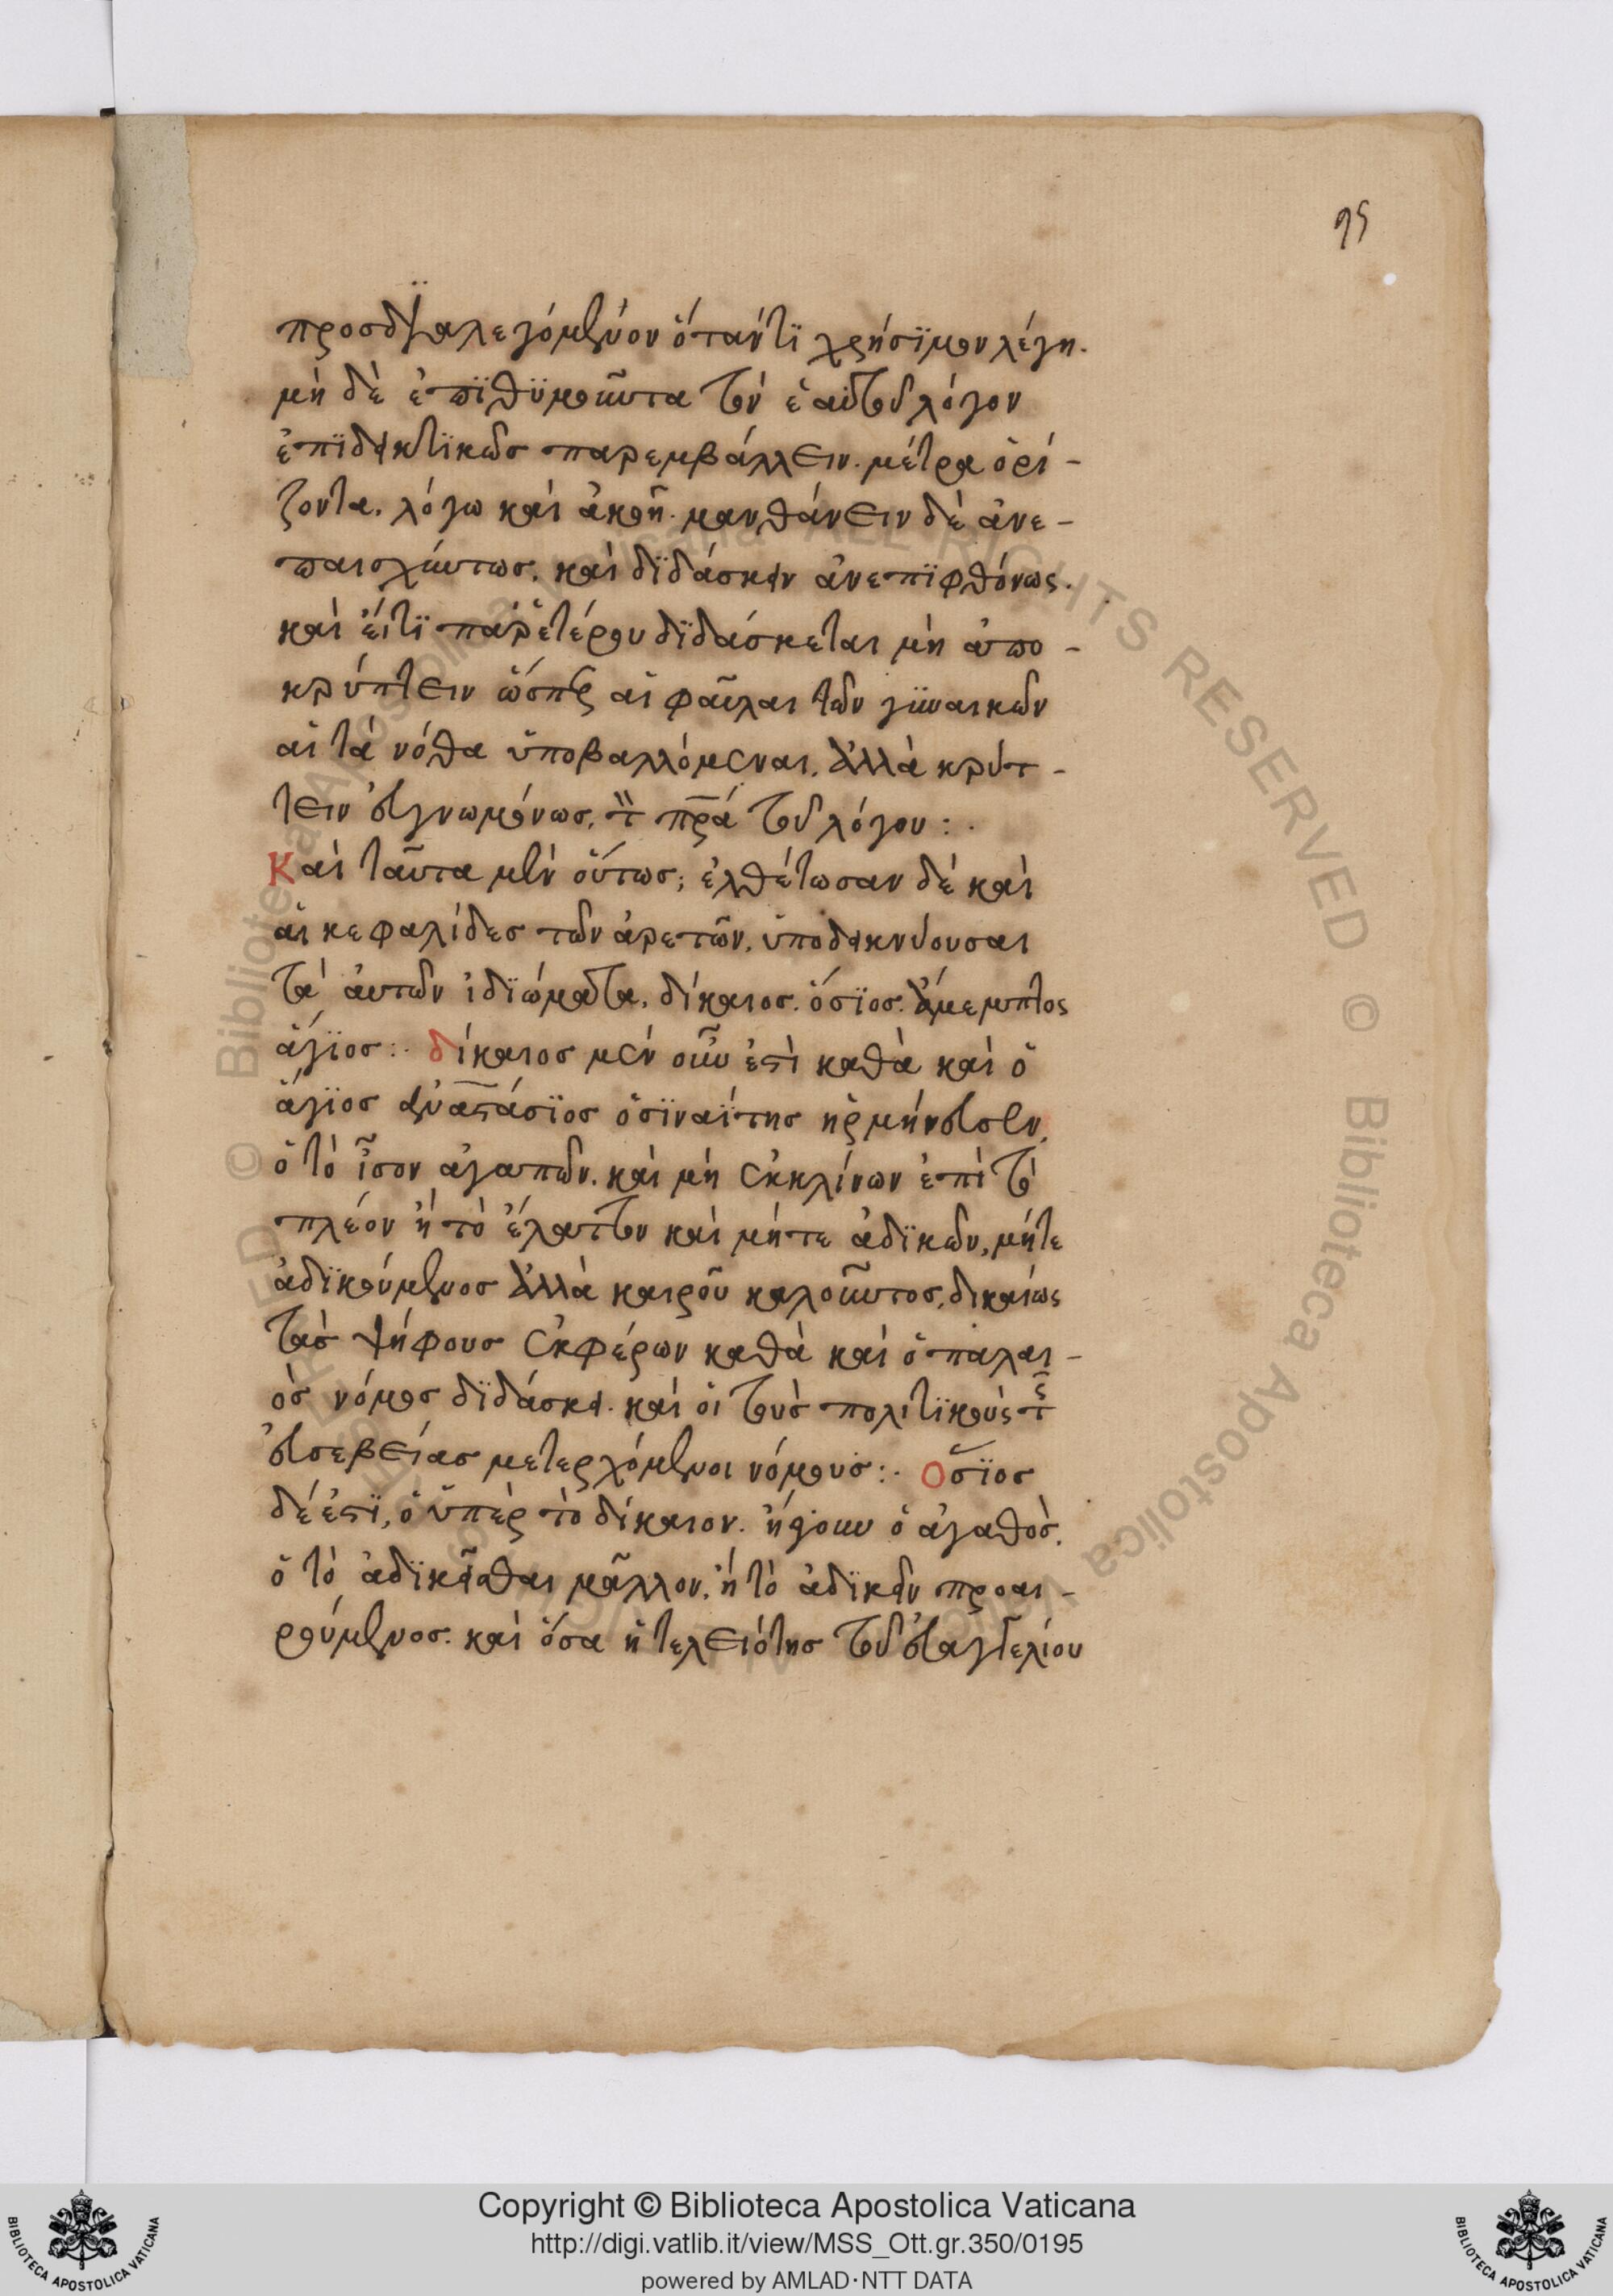 95
προσδιαλεγόμενον ὅτάν τϊ χρήσϊμον λέγη.
μὴ δὲ ἐπϊθϋμοῦντα τὸν ἑαὐτοῦ λόγον
ἐπϊδεικτϊκῶσ παρεμβάλλειν. μέτρα ὁρί-
ζοντα. λόγω καὶ ἀκοῆ. μανθάνειν δὲ ἀνε-
παισχύντωσ. καὶ δϊδάσκειν ἀνεπϊφθόνως.
καὶ εἴ τϊ παρ' ἑτέρου δϊδάσκεται μὴ ἀπο-
κρύπτειν ὥσπερ αἱ φαῦλαι τῶν γϋναικῶν
αἱ τὰ νόθα ὑποβαλλόμεναι. ἀλλὰ κρύπ-
τειν εὐγνωμόνωσ. τὸν πρα τοῦ λόγου:.
Καὶ ταῦτα μὲν οὕτωσ; ἐλθέτωσαν δὲ καὶ
αἱ κεφαλίδεσ τῶν ἀρετῶν. ὑποδεικνύουσαι
τὰ ἀυτῶν ἰδϊώματα. δίκαιοσ. ὅσϊοσ. ἄμεμπτος
ἅγϊοσ:. δίκαιοσ μὲν οὖν ἐστὶ καθὰ καὶ ὁ
ἅγϊοσ ἀναστάσϊοσ ὁ σϊναΐτησ ἡρμήνευσεν.
ὁ τὸ ἶσον ἀγαπῶν. καὶ μὴ ἐκκλίνων ἐπὶ τὸ
πλέον ἢ τὸ ἔλαττον καὶ μήτε ἀδϊκῶν, μήτε
ἀδϊκούμενοσ ἀλλὰ καιροῦ καλοῦντοσ, δικαίως
τὰσ ψήφουσ ἐκφέρων καθὰ καὶ ὁ παλαι-
ὸσ νόμοσ δϊδάσκει. καὶ οἱ τοὺσ πολιτϊκοὺς τῆς
εὐσεβείασ μετερχόμενοι νόμουσ:. Οσϊοσ
δέ ἐστϊ, ὁ ὑπὲρ τὸ δίκαιον. ἤγουν ὁ ἀγαθὸσ.
ὁ τὸ ἀδϊκεῖσθαι μᾶλλον. ἢ τὸ ἀδϊκεῖν προαι-
ρούμενοσ. καὶ ὅσα ἡ τελειότησ τοῦ εὐαγγελίου
Copyright © Biblioteca Apostolica Vaticana
http://digi.vatlib.it/view/MSS_Ott.gr.350/0195
powered by AMLAD·NTT DATA
BIBLIOTECA APOSTOLICA VATICANA
BIBLIOTECA APOSTOLICA VATICANA